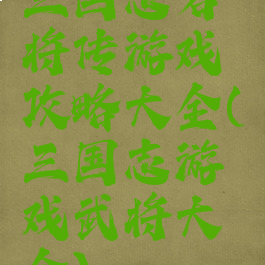 三国志名
将传游戏
攻略大全(
三国志游
戏武将大
全)